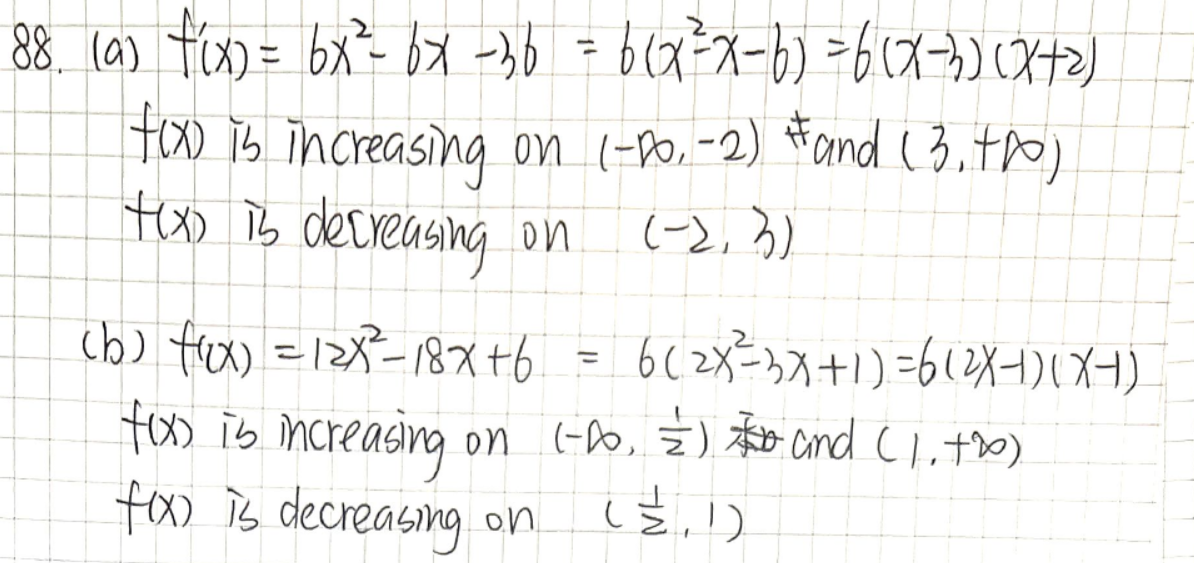 88. (a) f'(x) = 6x²-6x-36 = 6(x²-x-6) = 6(x-3)(x+2)
f(x) is increasing on (-∞, -2) and (3, +∞)
f(x) is decreasing on (-2, 3)
(b) f'(x) = 12x²-18x+6 = 6(2x²-3x+1) = 6(2x-1)(x-1)
f(x) is increasing on (-∞, 1/2) and (1, +∞)
f(x) is decreasing on (1/2, 1)